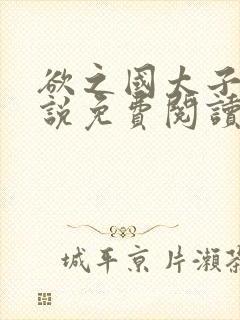 欲之國大子
說免費閱讀
城平京 片瀨